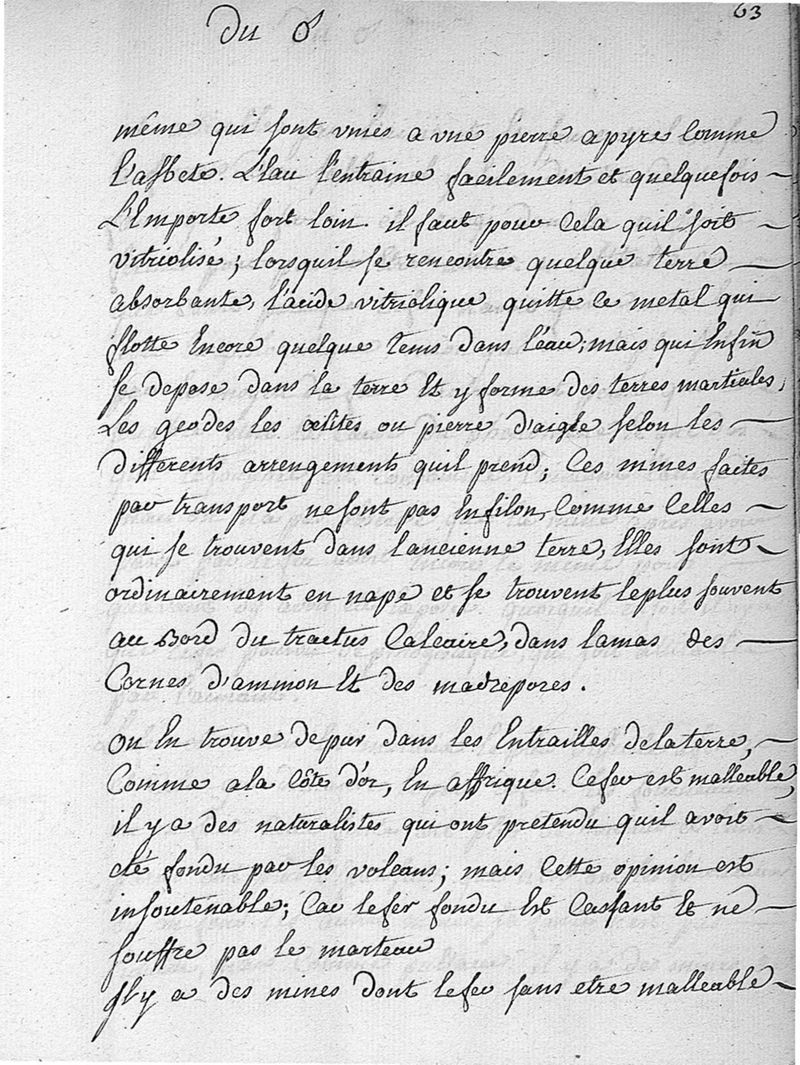 63
du ♂
même qui sont unies a une pierre apyre Comme
l'asbete. L'eau l'entraine facilement et quelquefois —
L'Emporte fort loin. il faut pour Cela quil soit —
vitriolisé; lorsquil se rencontre quelque terre —
absorbante, l'acide vitriolique quitte ce metal qui
flotte Encore quelque tems dans l'eau; mais qui Enfin
se depose dans la terre Et y forme des terres martiales,
Les geodes les œtites ou pierre d'aigle selon les —
differents arrengements quil prend; Ces mines faites
par transport ne sont pas En filon, Comme Celles —
qui se trouvent dans lancienne terre, Elles sont —
ordinairement en nape et se trouvent leplus souvent
au Bord du tractus Calcaire, dans lamas des —
Cornes d'ammon Et des madrepores.
On En trouve de pur dans les Entrailles delaterre, —
Comme a la Côte d'or, En affrique. Cefer est malleable,
il y a des naturalistes qui ont pretendu quil avoit —
eté fondu par les volcans; mais Cette opinion est
insoutenable; Car lefer fondu Est Cassant Et ne —
souffre pas le marteau
Il y a des mines dont lefer sans etre malleable —